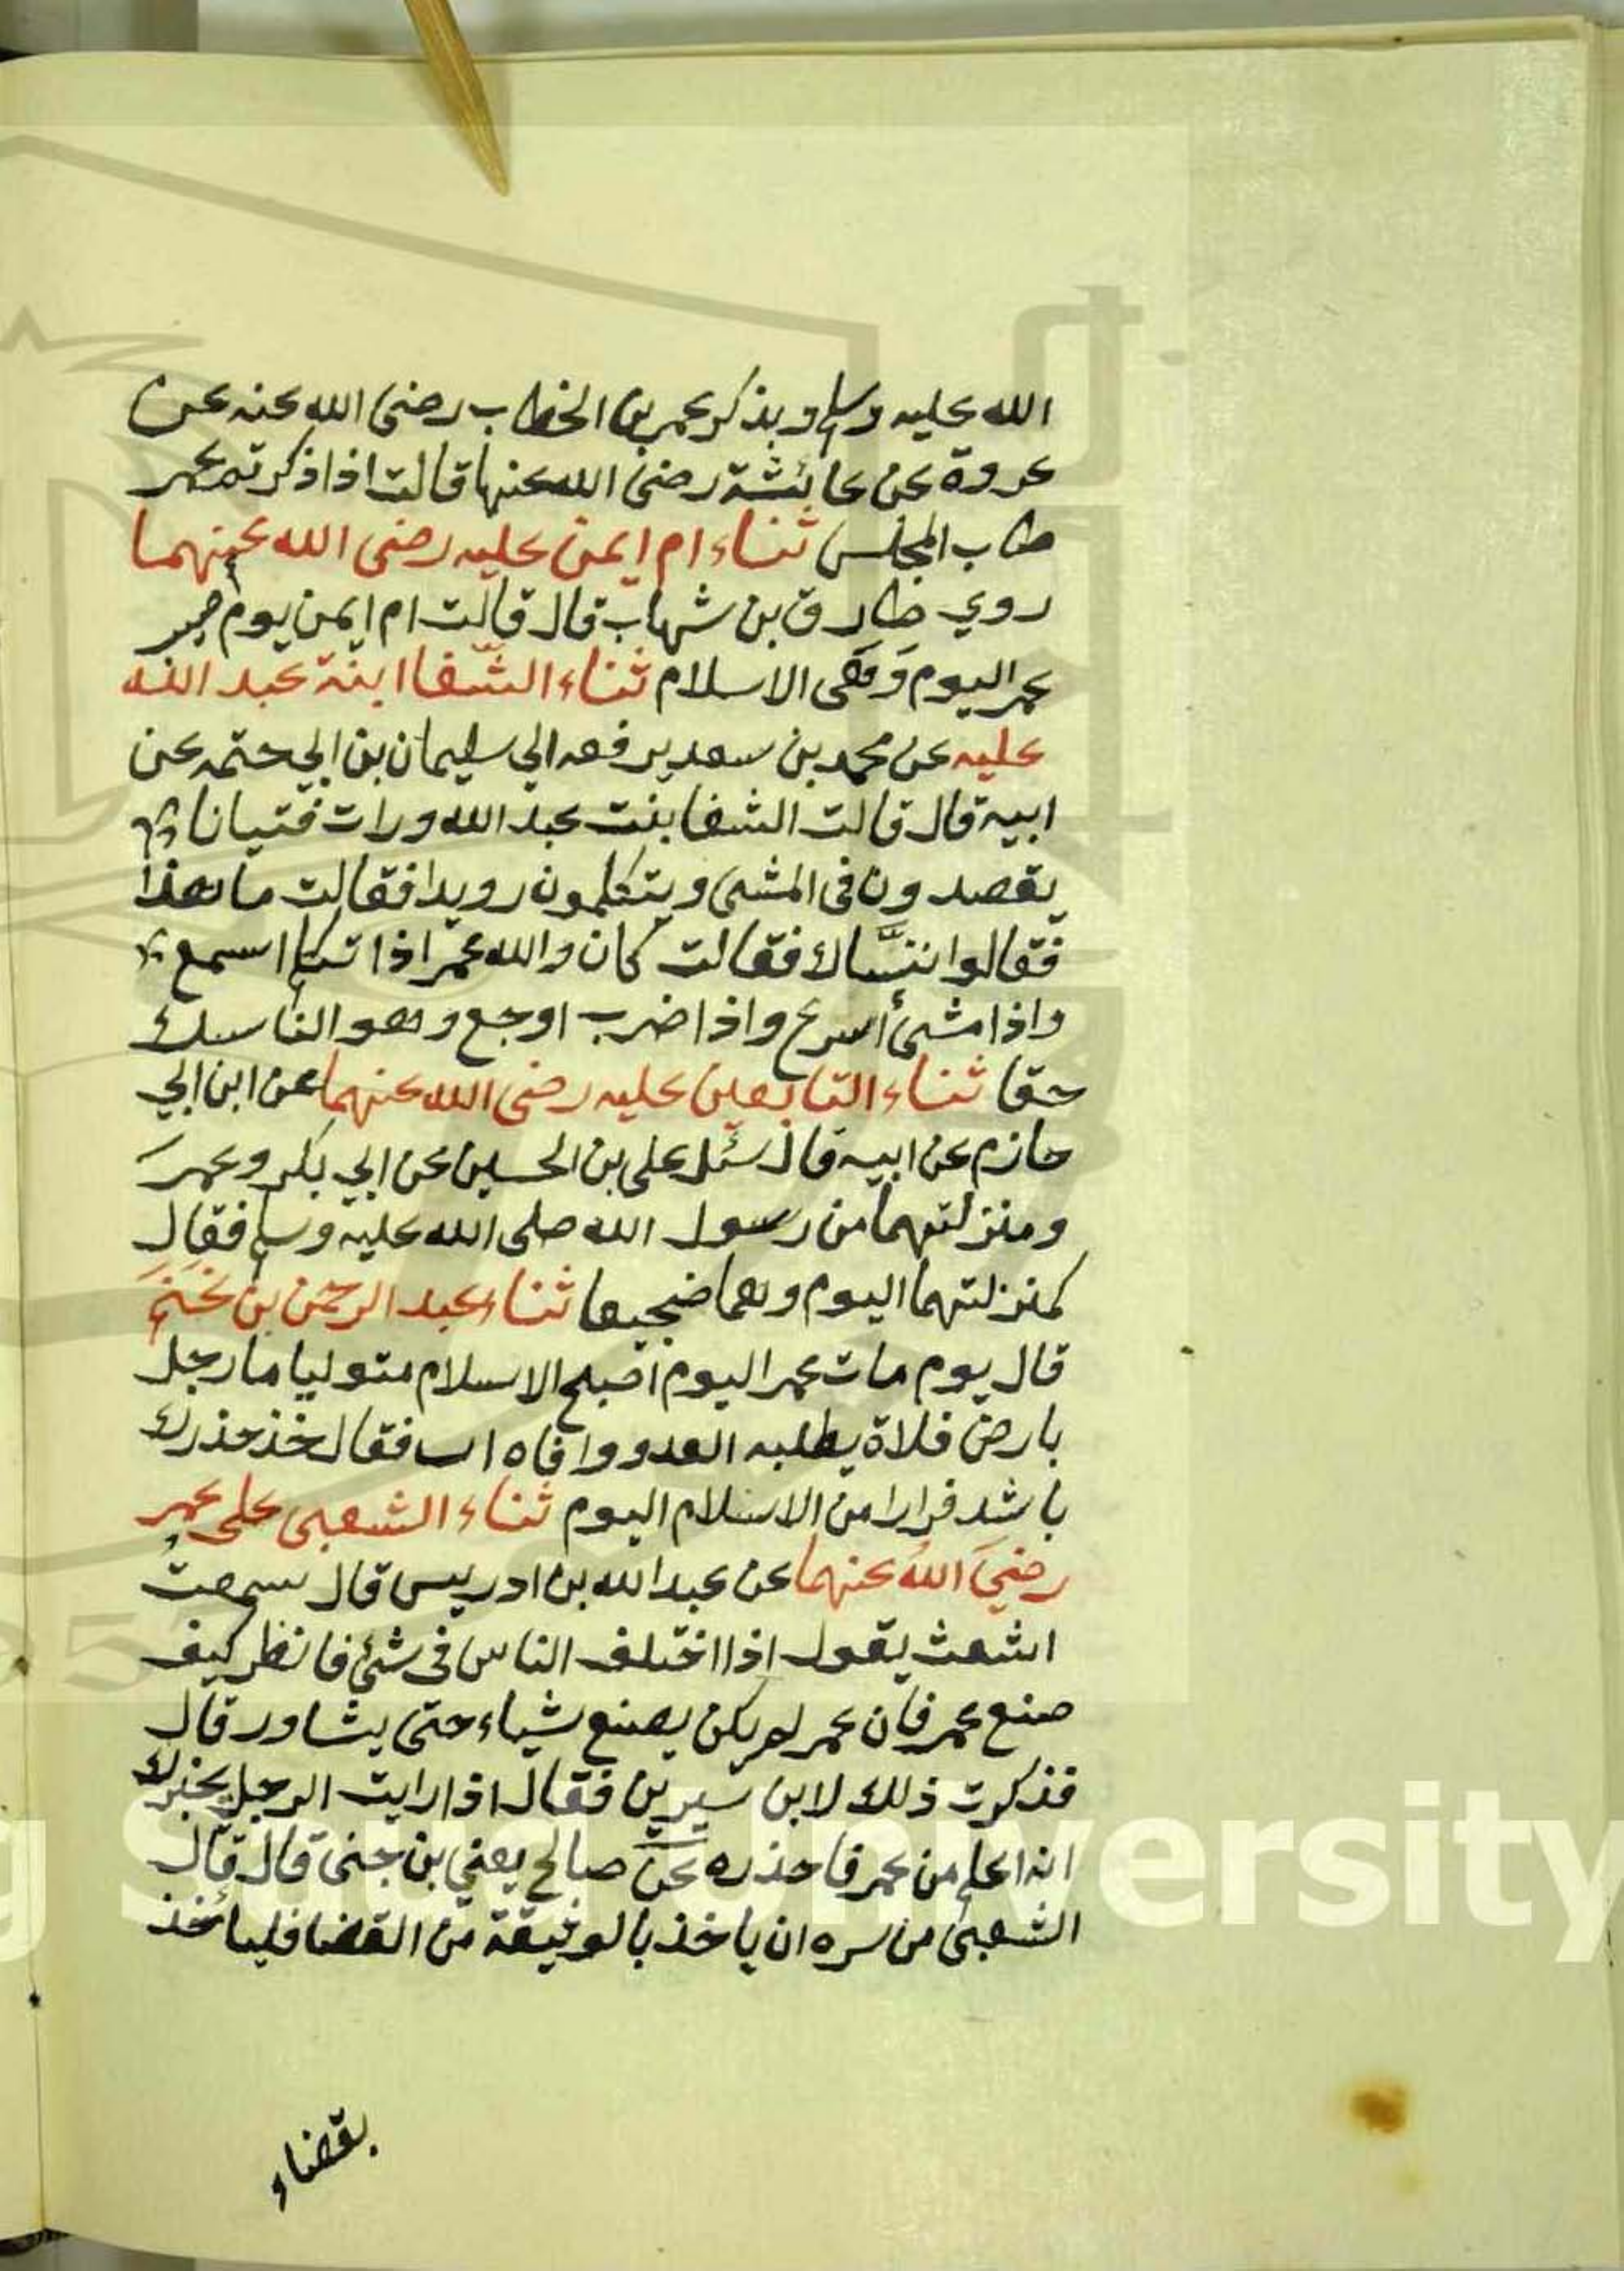 الله عليه وسلم وبذكر عمر بن الخطاب رضى الله عنه عن
عروة عن عائشة رضى الله عنها قالت اذا ذكرتم عمر
طاب المجلس ثناء ام ايمن عليه رضى الله عنهما
روي طارق بن شهاب قال قالت ام ايمن يوم
عمر اليوم وَهَى الاسلام ثناء الشّفا ابنة عبد الله
عليه عن محمد بن سعد يرفعه الي سليمان بن ابي حتمه عن
ابيه قال قالت الشفا بنت عبد الله ورات فتيانا
يقصدون فى المشى ويتكلمون رويدا فقالت ما هذا
فقالوا ننسّاك فقالت كان والله عمر اذا تكلم اسمع
واذا مشىٔ أسرع واذا ضرب اوجع وهو الناسك
حقا ثناء التابعين عليه رضى الله عنهما عن ابن ابي
حازم عن ابيه قال سئل على بن الحسين عن ابي بكر وعمر
ومنزلتهما من رسول الله صلى الله عليه وسلم فقال
كمنزلتهما اليوم وهما ضجيعا ثناء عبد الرحمن بن غَنَمٍ
قال يوم مات عمر اليوم اصبح الاسلام متوليا ما رجل
بارض فلاة يطلبه العدو وافاه ات فقال خذ حذرك
باشد فرارا من الاسلام اليوم ثناء الشعبى على عمر
رضيَ اللهُ عنهما عن عبد الله بن ادريس قال سمعت
اشعث يقول اذا اختلف الناس فى شئ فانظر كيف
صنع عمر فان عمر لم يكن يصنع شياء حتى يشاور قال
فذكرت ذلك لابن سيرين فقال اذا رايت الرجل يخبرك
انه اعلم من عمر فاحذره عن صالح يعني بن جنى قال قال
الشعبىٔ من سره ان ياخذ بالوثيقة من القضا فليأخذ
بقضاء